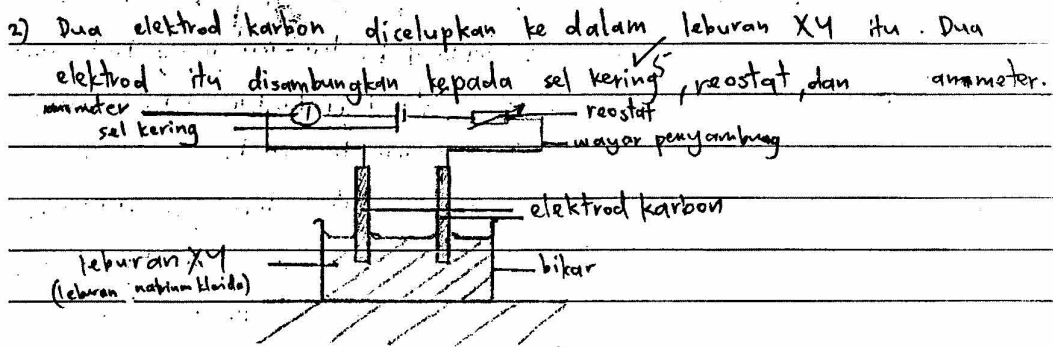 2) Dua elektrod karbon dicelupkan ke dalam leburan XY itu. Dua
elektrod itu disambungkan kepada sel kering, reostat, dan ammeter.
ammeter
reostat
sel kering
wayar penyambung
elektrod karbon
leburan XY
(leburan natrium klorida)
bikar